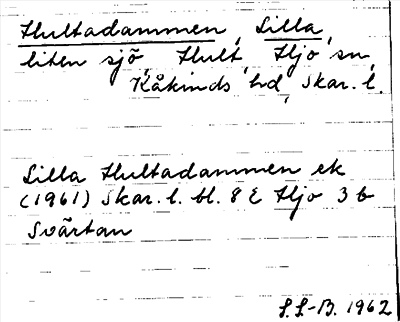 Hultadammen, Lilla,
liten sjö, Hult, Hjo sn,
Kåkinds hd, Skar. l.
Lilla Hultadammen ek
(1961) Skar. l. bl. 8 E Hjo 3 b
Svärtan
S.S-B. 1962